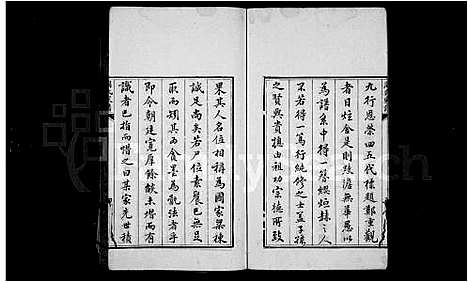 九行恩榮四五代樣趙鄭重觀
者日炷會是則歧澹無華恩以
為譜系中得一簪纓烜赫之人
不若得一篤行純修之士蓋子孫
之賢與貴橫由祖功宗德所致
果其人名位相稱為國家梁棟
誠足尚矣若尸位素餐已無足
取而頻其而食墨為亂法者乎
即令朝建寬厚餘獻未墻而有
識者已指而惜之曰某家先世積